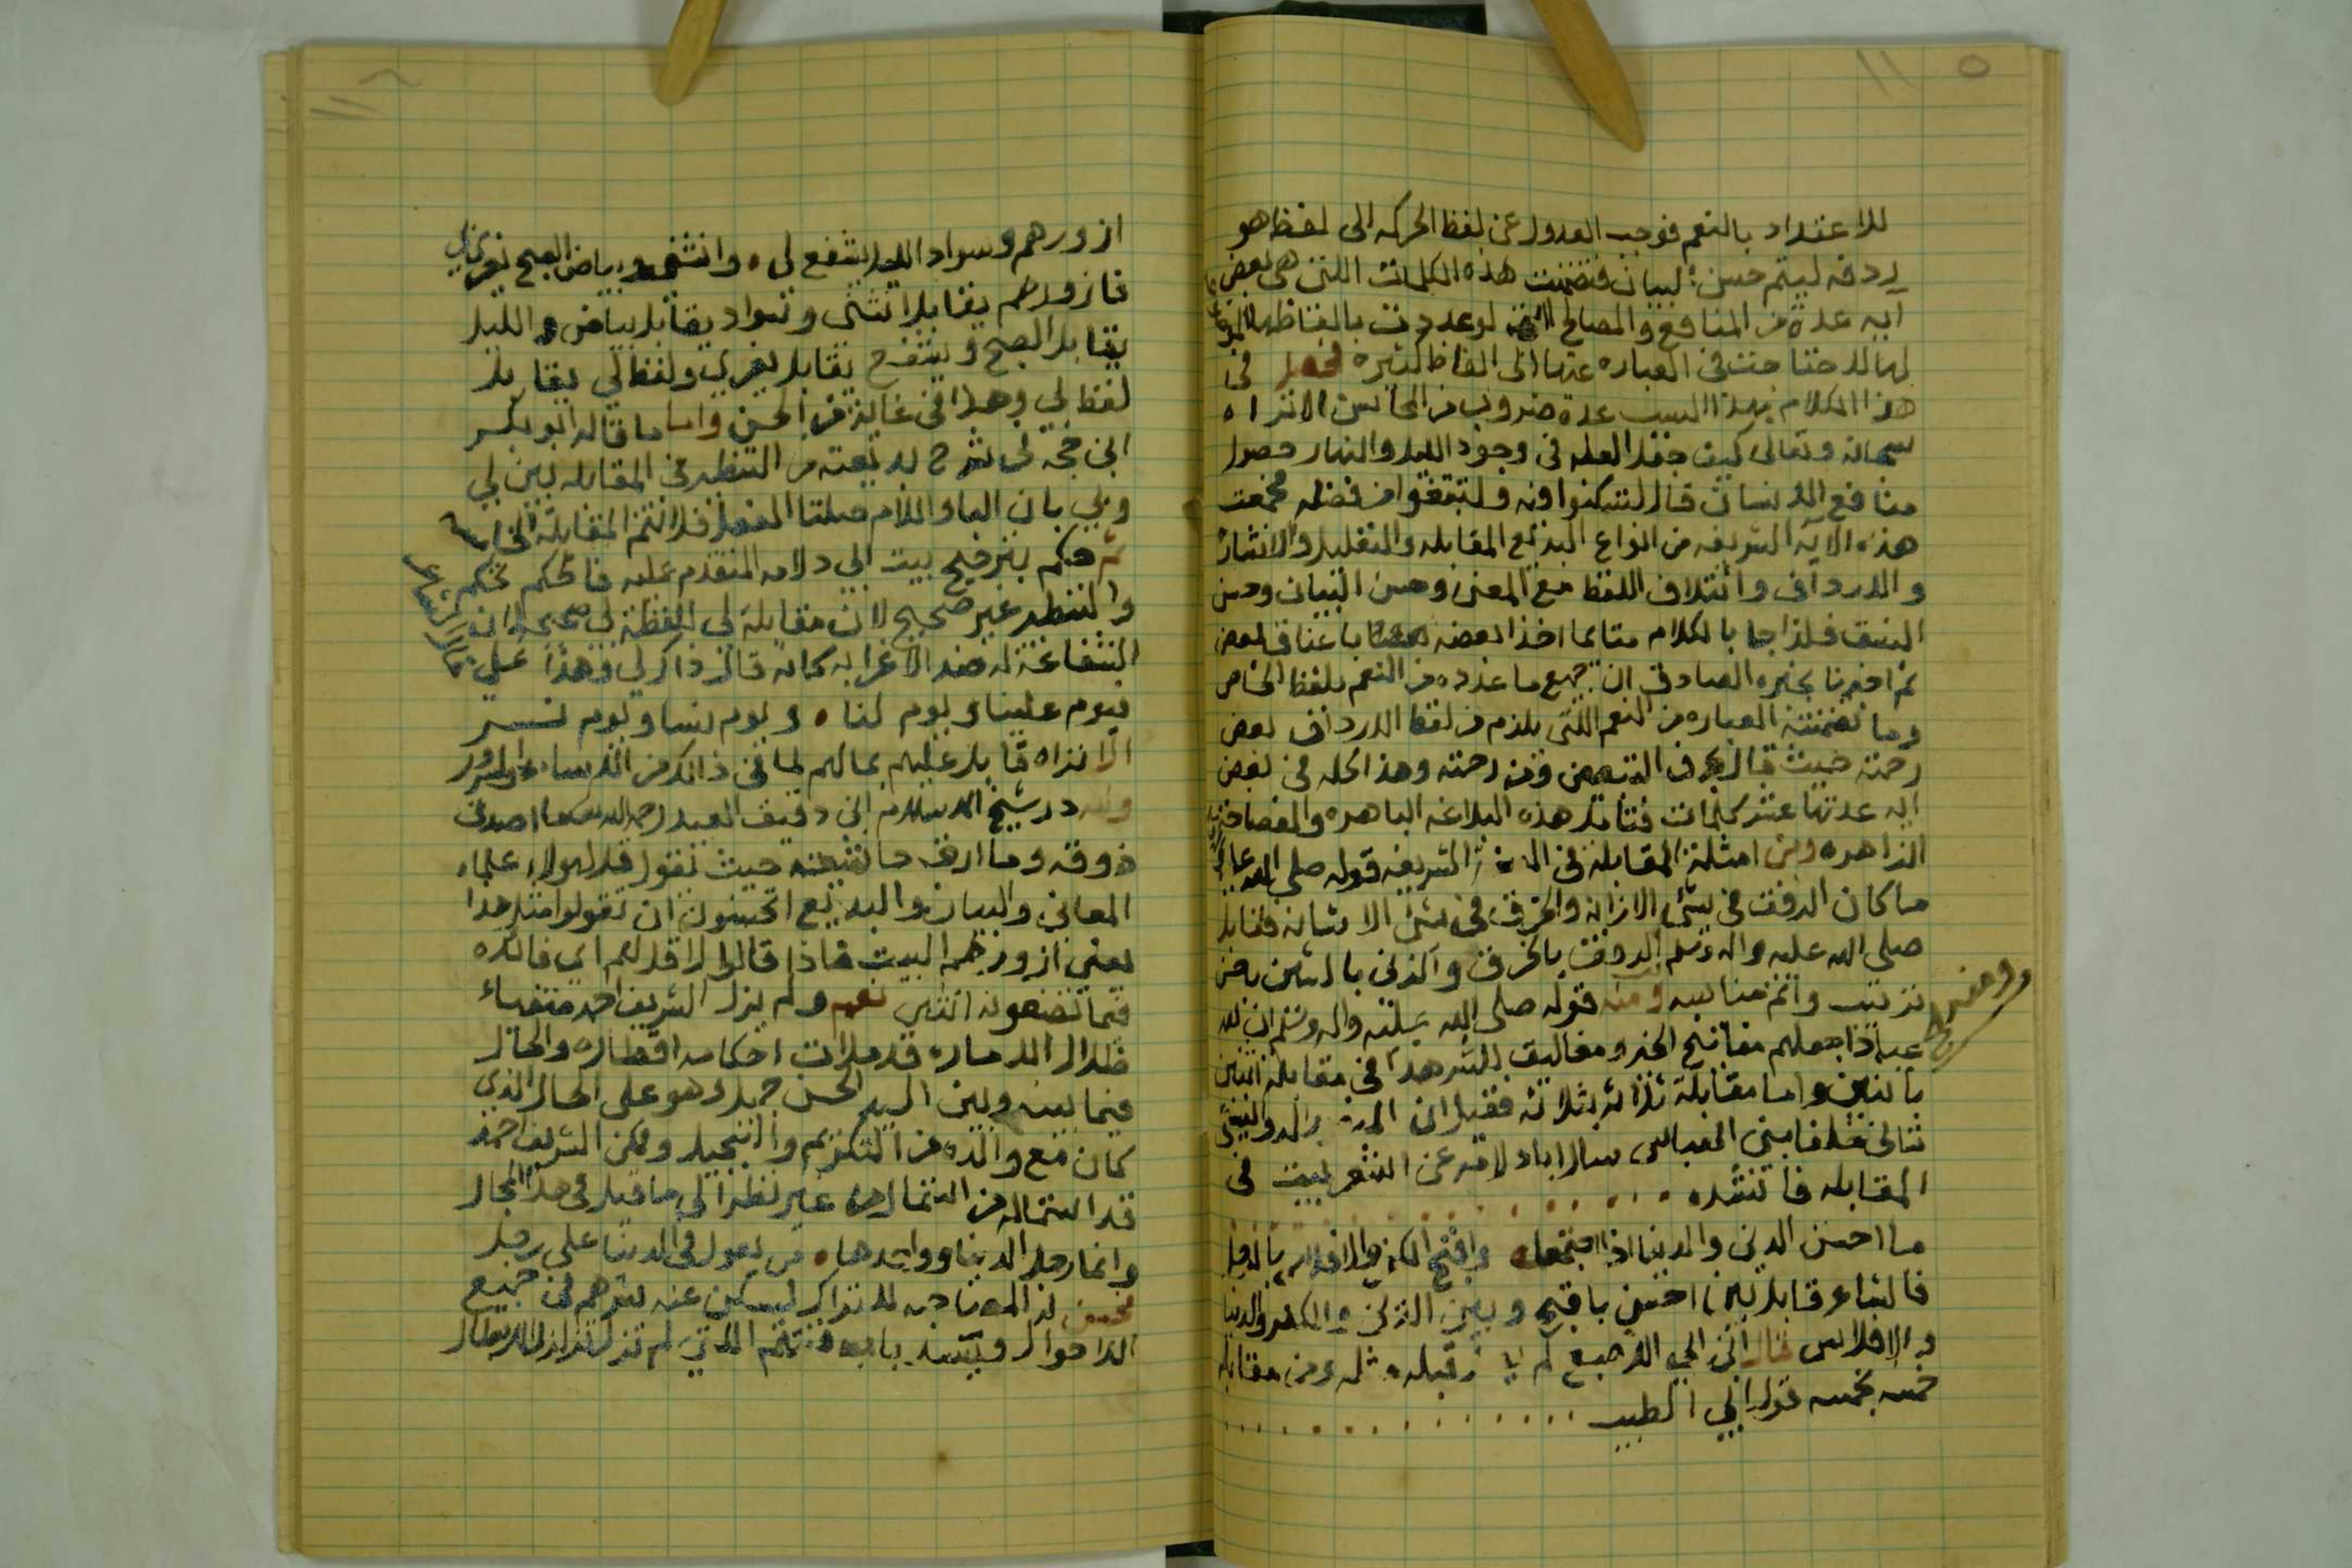 للاعتداد بالنعم فوجب العدول عن لفظ الحركه الى لفظ هو
ردفه ليتم حسن البيان فتضمنت هذه الكلمات اللتى هى بعض
آيه عدة من المنافع والمصالح لو عددت بالفاظها
لها لاحتاجت في العباره عنها الى الفاظ كثيره فحصل في
هذا الكلام بهذا السبب عدة ضروب من المحاسن الا تراه
سبحانه وتعالى كيف جعل العله في وجود الليل والنهار حصول
منافع الانسان قال لتسكنوا فيه ولتبتغوا من فضله فجمعت
هذه الآيه الشريفه من انواع البديع المقابله والتعليل والاشاره
والارداف وائتلاف اللفظ مع المعنى وحسن البيان وحسن
النسق فلذا جا بالكلام متلائما اخذا بعضه باعناق بعض
ثم اخبرنا بخبره الصادق ان جميع ما عدده من النعم بلفظ الخاص
وما تضمنته العباره من النعم اللتى يلزم من لفظ الارداف بعض
رحمته حيث قال بحرف التبعيض ومن رحمته وهذا كله في بعض
ايه عدتها عشر كلمات فتامل هذه البلاغه الباهره والفصاحه
الزاهره ومن امثلة المقابلة في السنة الشريفه قوله صلى الله عليه
ما كان الرفق في شئ الا زانه والخرق في شئ الا شانه فقابل
صلى الله عليه واله وسلم الرفق بالخرق والزين بالشين باحسن
ترتيب واتم مناسبه ومنه قوله صلى الله عليه واله وسلم ان لله
عبادا جعلهم مفاتيح الخير ومغاليق للشر هذا في مقابلة اثنين
باثنين واما مقابلة ثلاثه بثلاثه فقيل ان
المنصور
ثانى خلفا بني العباس سال ابا دلامه عن اشعر بيت في
المقابله فانشده
ما احسن الدين والدنيا اذا اجتمعا واقبح الكفر والافلاس بالرجل
فالشاعر قابل بين احسن باقبح وبين الدين والكفر والدنيا
والافلاس قال ابن ابي الاصبع لم قبله مثله ومن مقابلة
خمسه بخمسه قول ابي الطيب
ازورهم وسواد الليل يشفع لي وانثنى وبياض الصبح يغري بي
فازورهم يقابل انثنى وسواد يقابل بياض والليل
يقابل الصبح ويشفع يقابل يغري ولفظ لي يقابل
لفظ بي وهذا في غاية من الحسن واما ما قاله ابو بكر
ابن حجه في شرح بديعته من التنظير في المقابله بين لي
وبي بان البا واللام صلتا الفعل فلا تتم المقابلة
ثم حكم بترجيح بيت ابي دلامه المتقدم عليه فالحكم تحكم
والتنظير غير صحيح لان مقابلة لي للفظة بي صحيحه لان
الشفاعة له ضد الاغرا به كانه قال ذاك لي وهذا علي
فيوم علينا ويوم لنا ويوم نسا ويوم نسر
الا تراه قابل عليهم بما لهم لما في ذالك من الاساءه والسرور
ولله در شيخ الاسلام ابن دقيق العيد رحمه الله ما اصدق
ذوقه وما ارق حاشيته حيث يقول قل لهولاء علماء
المعاني والبيان والبديع اتحسنون ان تقولوا مثل هذا
يعني ازورهم البيت فاذا قالوا لا قل لهم اي فائده
فيما تضعونه انتهى نعم ولم يزل الشريف احمد متفياء
ظلال الاماره قد ملات احكامه اقطاره والحال
فيما بينه وبين السيد الحسن جميل وهو على الحال الذي
كان مع والده من التكريم والتبجيل ولكن الشريف احمد
قد استماله من استماله غير نظر الى ما قيل في هذا المجال
وانما رجل الدنيا وواحدها من لا يعول في الدنيا على رجل
الاحوال